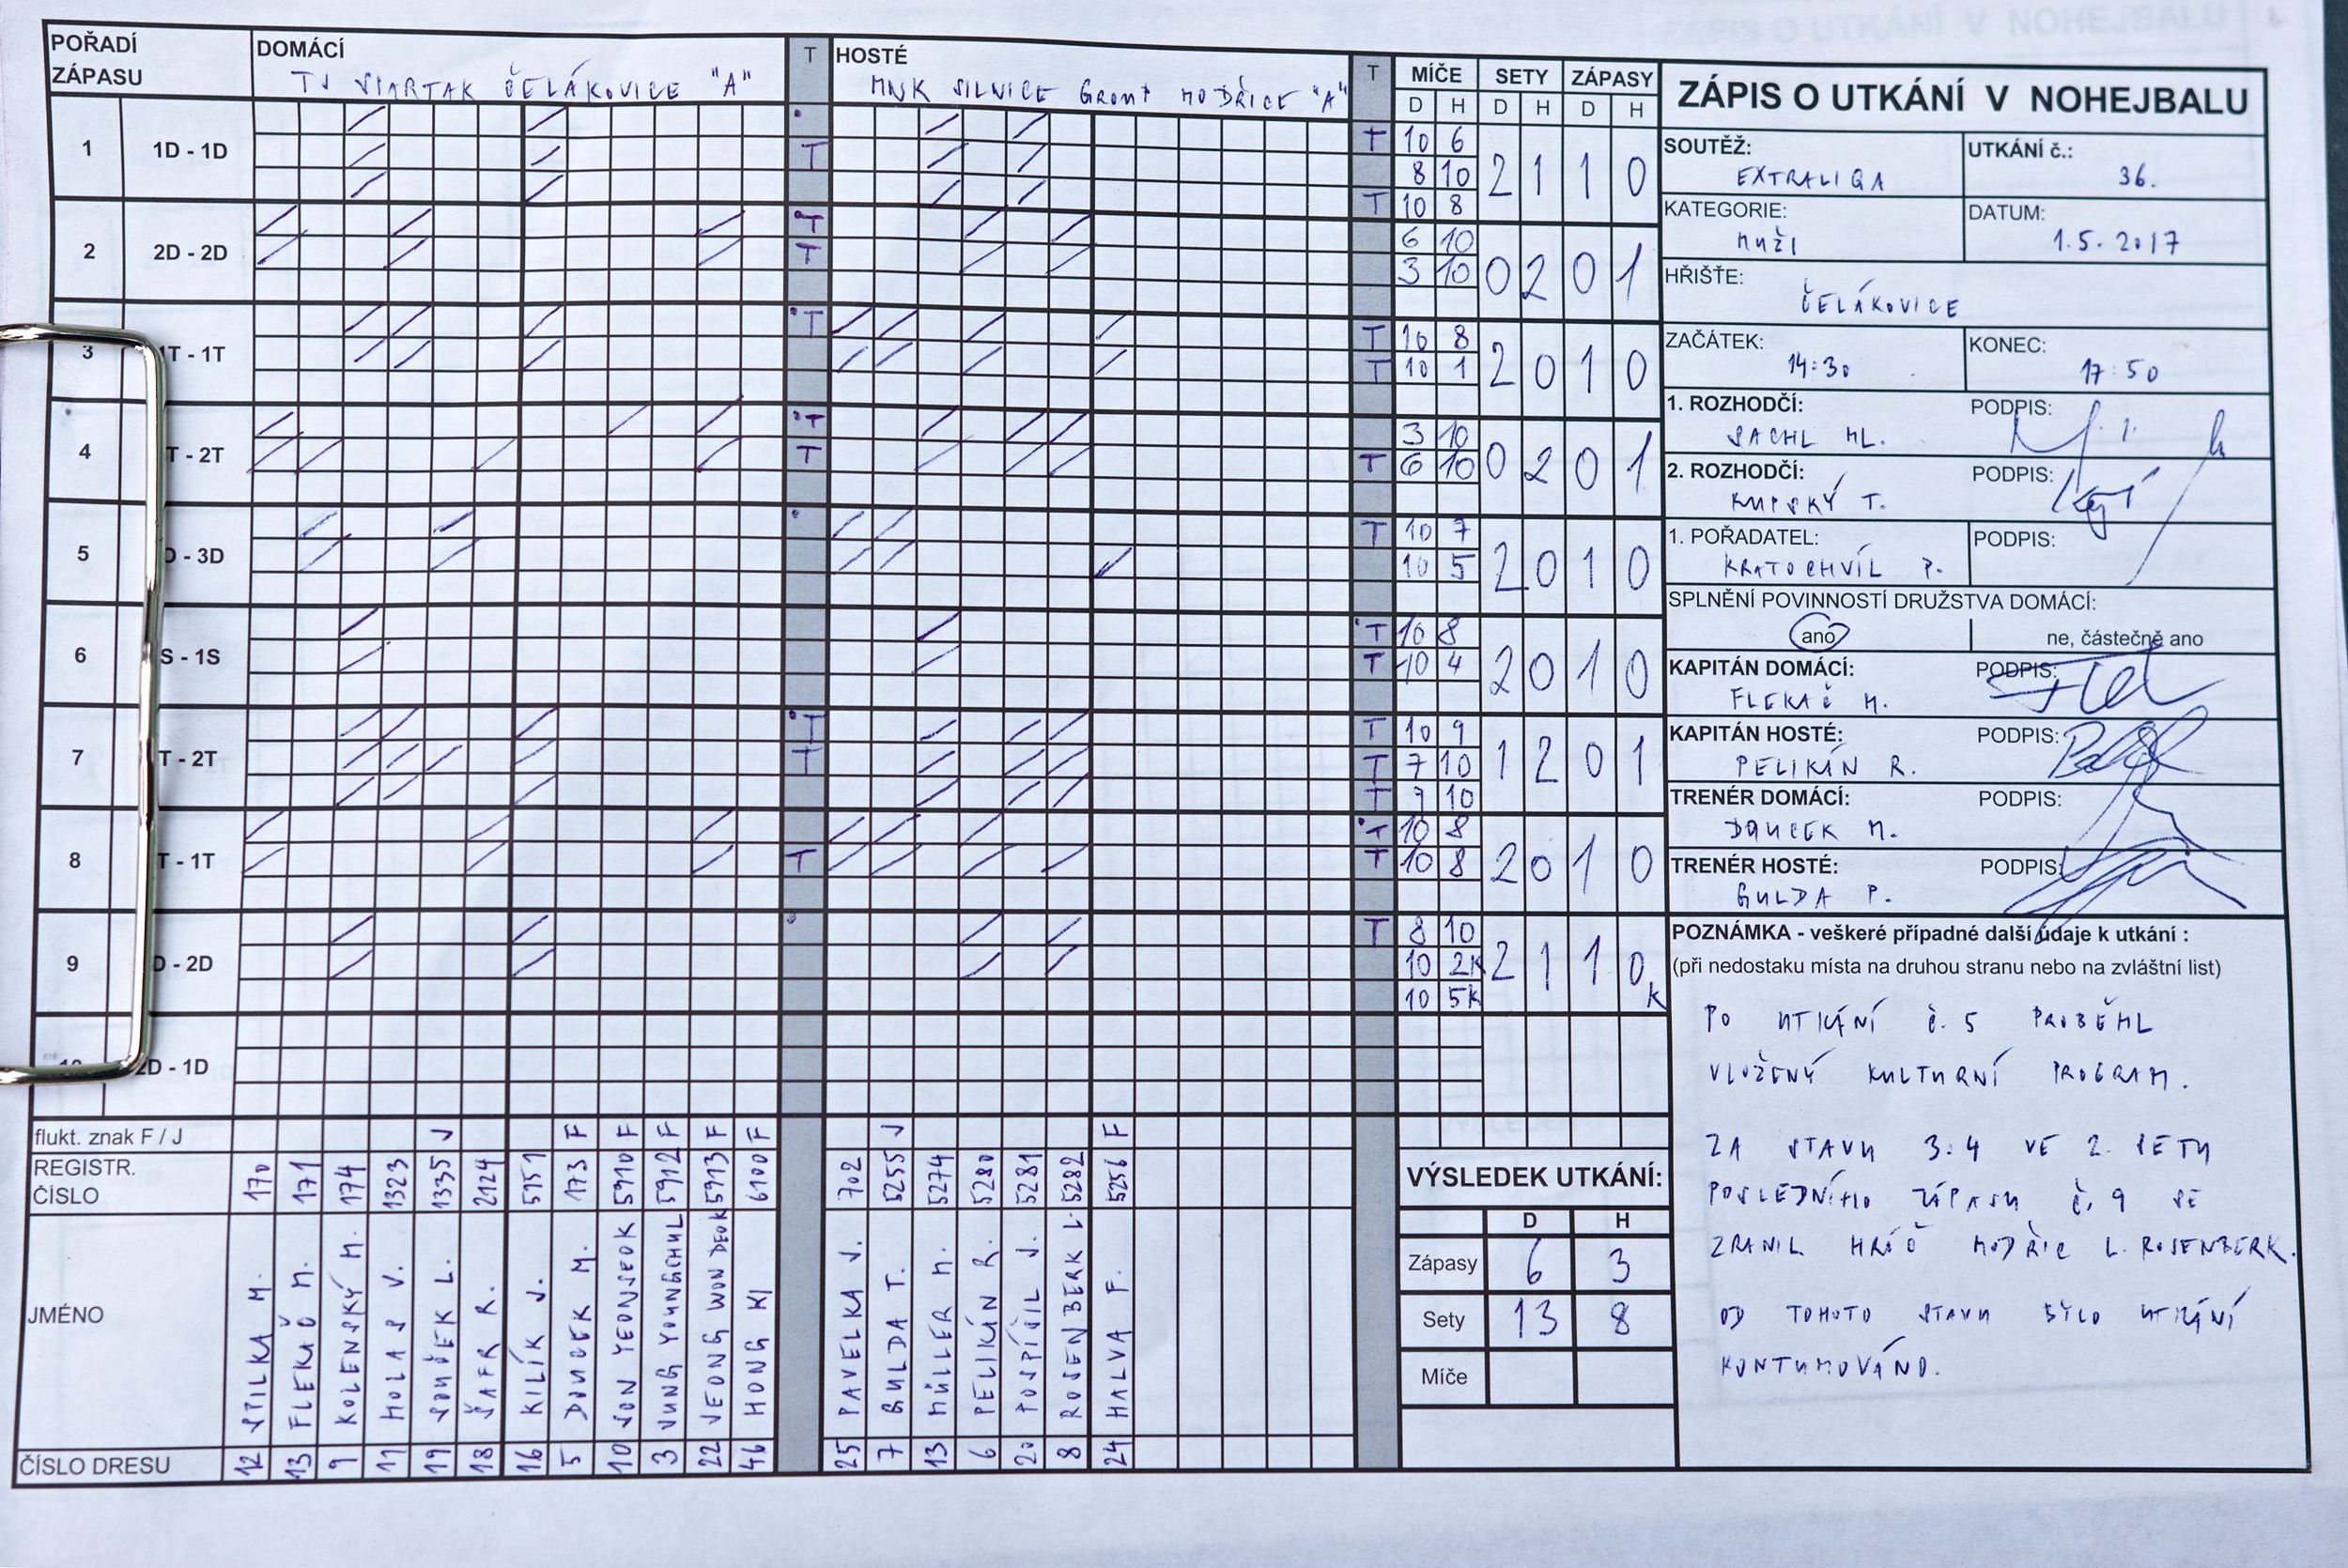 ZÁPIS O UTKÁNÍ V NOHEJBALU
POŘADÍ ZÁPASU
DOMÁCÍ
TJ SPARTAK ČELÁKOVICE "A"
T
HOSTÉ
MNK SILNICE GROUP MODŘICE "A"
T
MÍČE SETY ZÁPASY
D H D H D H
1 1D - 1D T T 10 6 2 1 1 0
8 10
T 10 8
2 2D - 2D T 6 10 0 2 0 1
T 3 10
3 1T - 1T T T 10 8 2 0 1 0
T 10 1
4 T - 2T T 3 10 0 2 0 1
T T 6 10
5 D - 3D T 10 7 2 0 1 0
10 5
6 S - 1S T 10 8 2 0 1 0
T 10 4
7 T - 2T T T 10 9 1 2 0 1
T T 7 10
T 9 10
8 T - 1T T 10 8 2 0 1 0
T T 10 8
9 D - 2D T 8 10 2 1 1 0 K
10 2K
10 5K
2D - 1D
flukt. znak F / J J F F F F F J F
REGISTR. ČÍSLO 170 171 174 1323 1335 2124 5951 173 5910 5912 5913 6100 702 5255 5274 5280 5281 5282 5256
JMÉNO
SPILKA M.
FLEKAČ M.
KOLENSKÝ M.
HOLAS V.
SOUČEK L.
ŠAFR R.
KILÍK J.
DOUCEK M.
SON YEONSEOK
JUNG YOUNGCHUL
JEONG WON DEOK
HONG KI
PAVELKA J.
GULDA T.
MÜLLER M.
PELIKÁN R.
POSPÍŠIL J.
ROSENBERK L.
HALVA F.
ČÍSLO DRESU 12 13 9 11 19 18 16 5 10 3 22 46 25 7 13 6 20 8 24
VÝSLEDEK UTKÁNÍ:
D H
Zápasy 6 3
Sety 13 8
Míče
SOUTĚŽ:
EXTRALIGA
UTKÁNÍ č.:
36.
KATEGORIE:
MUŽI
DATUM:
1.5.2017
HŘIŠTĚ:
ČELÁKOVICE
ZAČÁTEK:
14:30
KONEC:
17:50
1. ROZHODČÍ: PODPIS:
SACHL ML.
2. ROZHODČÍ: PODPIS:
KUPSKÝ T.
1. POŘADATEL: PODPIS:
KRATOCHVÍL P.
SPLNĚNÍ POVINNOSTÍ DRUŽSTVA DOMÁCÍ:
ano ne, částečně ano
KAPITÁN DOMÁCÍ: PODPIS:
FLEKAČ M.
KAPITÁN HOSTÉ: PODPIS:
PELIKÁN R.
TRENÉR DOMÁCÍ: PODPIS:
DOUCEK M.
TRENÉR HOSTÉ: PODPIS:
GULDA P.
POZNÁMKA - veškeré případné další údaje k utkání :
(při nedostaku místa na druhou stranu nebo na zvláštní list)
PO UTKÁNÍ č. 5 PROBĚHL
VLOŽENÝ KULTURNÍ PROGRAM.
ZA STAVU 3:4 VE 2. SETU
POSLEDNÍHO ZÁPASU č. 9 SE
ZRANIL HRÁČ MODŘIC L. ROSENBERK.
OD TOHOTO STAVU BYLO UTKÁNÍ
KONTUMOVÁNO.